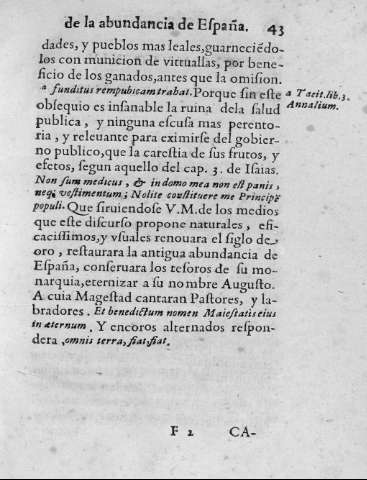 de la abundancia de España. 43
dades, y pueblos mas leales, guarneciēdo-
los con municion de vituallas, por bene-
ficio de los ganados, antes que la omision.
ª funditus rempubicam trahat. Porque sin este
a Tacit. lib. 3.
Annalium.
obsequio es insanable la ruina dela salud
publica, y ninguna escusa mas perento-
ria, y releuante para eximirse del gobier-
no publico, que la carestia de sus frutos, y
efetos, segun aquello del cap. 3. de Isaias.
Non sum medicus, & in domo mea non est panis,
neq; vestimentum; Nolite constituere me Principē
populi. Que siruiendose V.M. de los medios
que este discurso propone naturales, efi-
cacissimos, y vsuales renouara el siglo de
oro, restaurara la antigua abundancia de
España, conseruara los tesoros de su mo-
narquia, eternizar a su nombre Augusto.
A cuia Magestad cantaran Pastores, y la-
bradores. Et benedictum nomen Maiestatis eius
in æternum. Y encoros alternados respon-
dera, omnis terra, fiat, fiat.
F 2 CA-